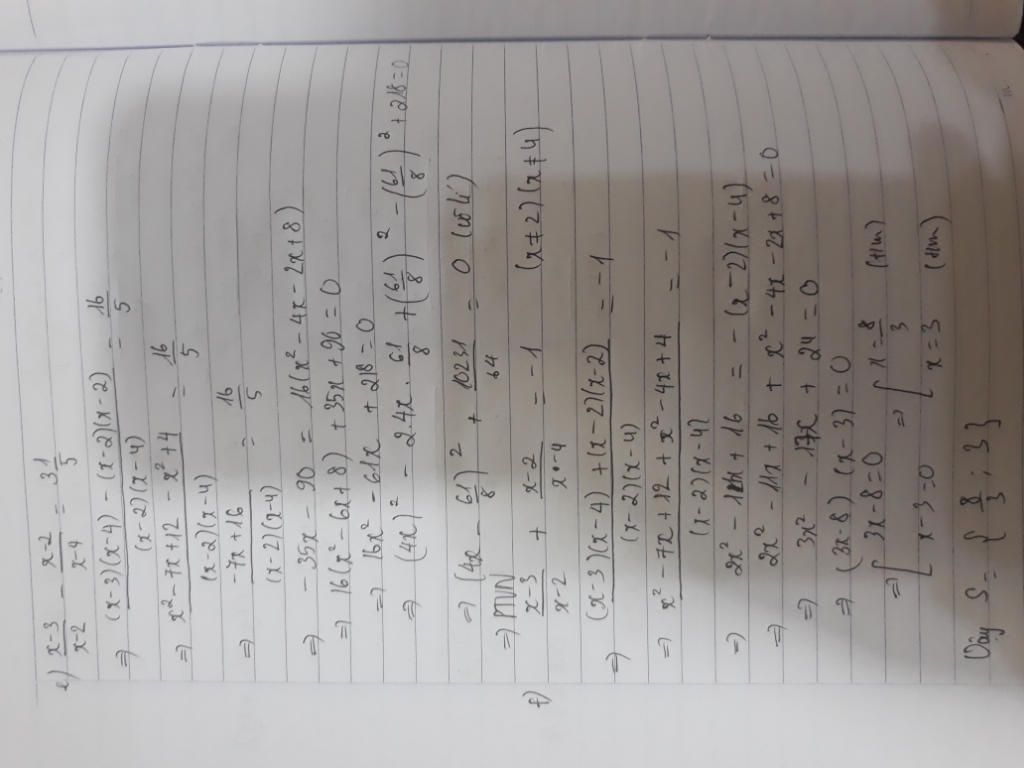 e) \frac{x-3}{x-2} - \frac{x-2}{x-4} = 3\frac{1}{5}
⇒ \frac{(x-3)(x-4) - (x-2)(x-2)}{(x-2)(x-4)} = \frac{16}{5}
⇒ \frac{x² - 7x + 12 - x² + 4}{(x-2)(x-4)} = \frac{16}{5}
⇒ \frac{-7x + 16}{(x-2)(x-4)} = \frac{16}{5}
⇒ - 35x - 90 = 16(x² - 4x - 2x + 8)
⇒ 16(x² - 6x + 8) + 35x + 90 = 0
⇒ 16x² - 61x + 218 = 0
⇒ (4x)² - 2.4x. \frac{61}{8} + (\frac{61}{8})² - (\frac{61}{8})² + 218 = 0
⇒ (4x - \frac{61}{8})² + \frac{10231}{64} = 0 (vô lí)
⇒ PTVN
f) \frac{x-3}{x-2} + \frac{x-2}{x-4} = -1 (x ≠ 2) (x ≠ 4)
⇒ \frac{(x-3)(x-4) + (x-2)(x-2)}{(x-2)(x-4)} = -1
⇒ \frac{x² - 7x + 12 + x² - 4x + 4}{(x-2)(x-4)} = -1
⇒ 2x² - 11x + 16 = - (x-2)(x-4)
⇒ 2x² - 11x + 16 + x² - 4x - 2x + 8 = 0
⇒ 3x² - 17x + 24 = 0
⇒ (3x-8) (x-3) = 0
⇒ [ 3x-8=0 ⇒ [ x = \frac{8}{3} (t/m)
x-3=0 x=3 (t/m)
Vậy S = { \frac{8}{3} ; 3 }